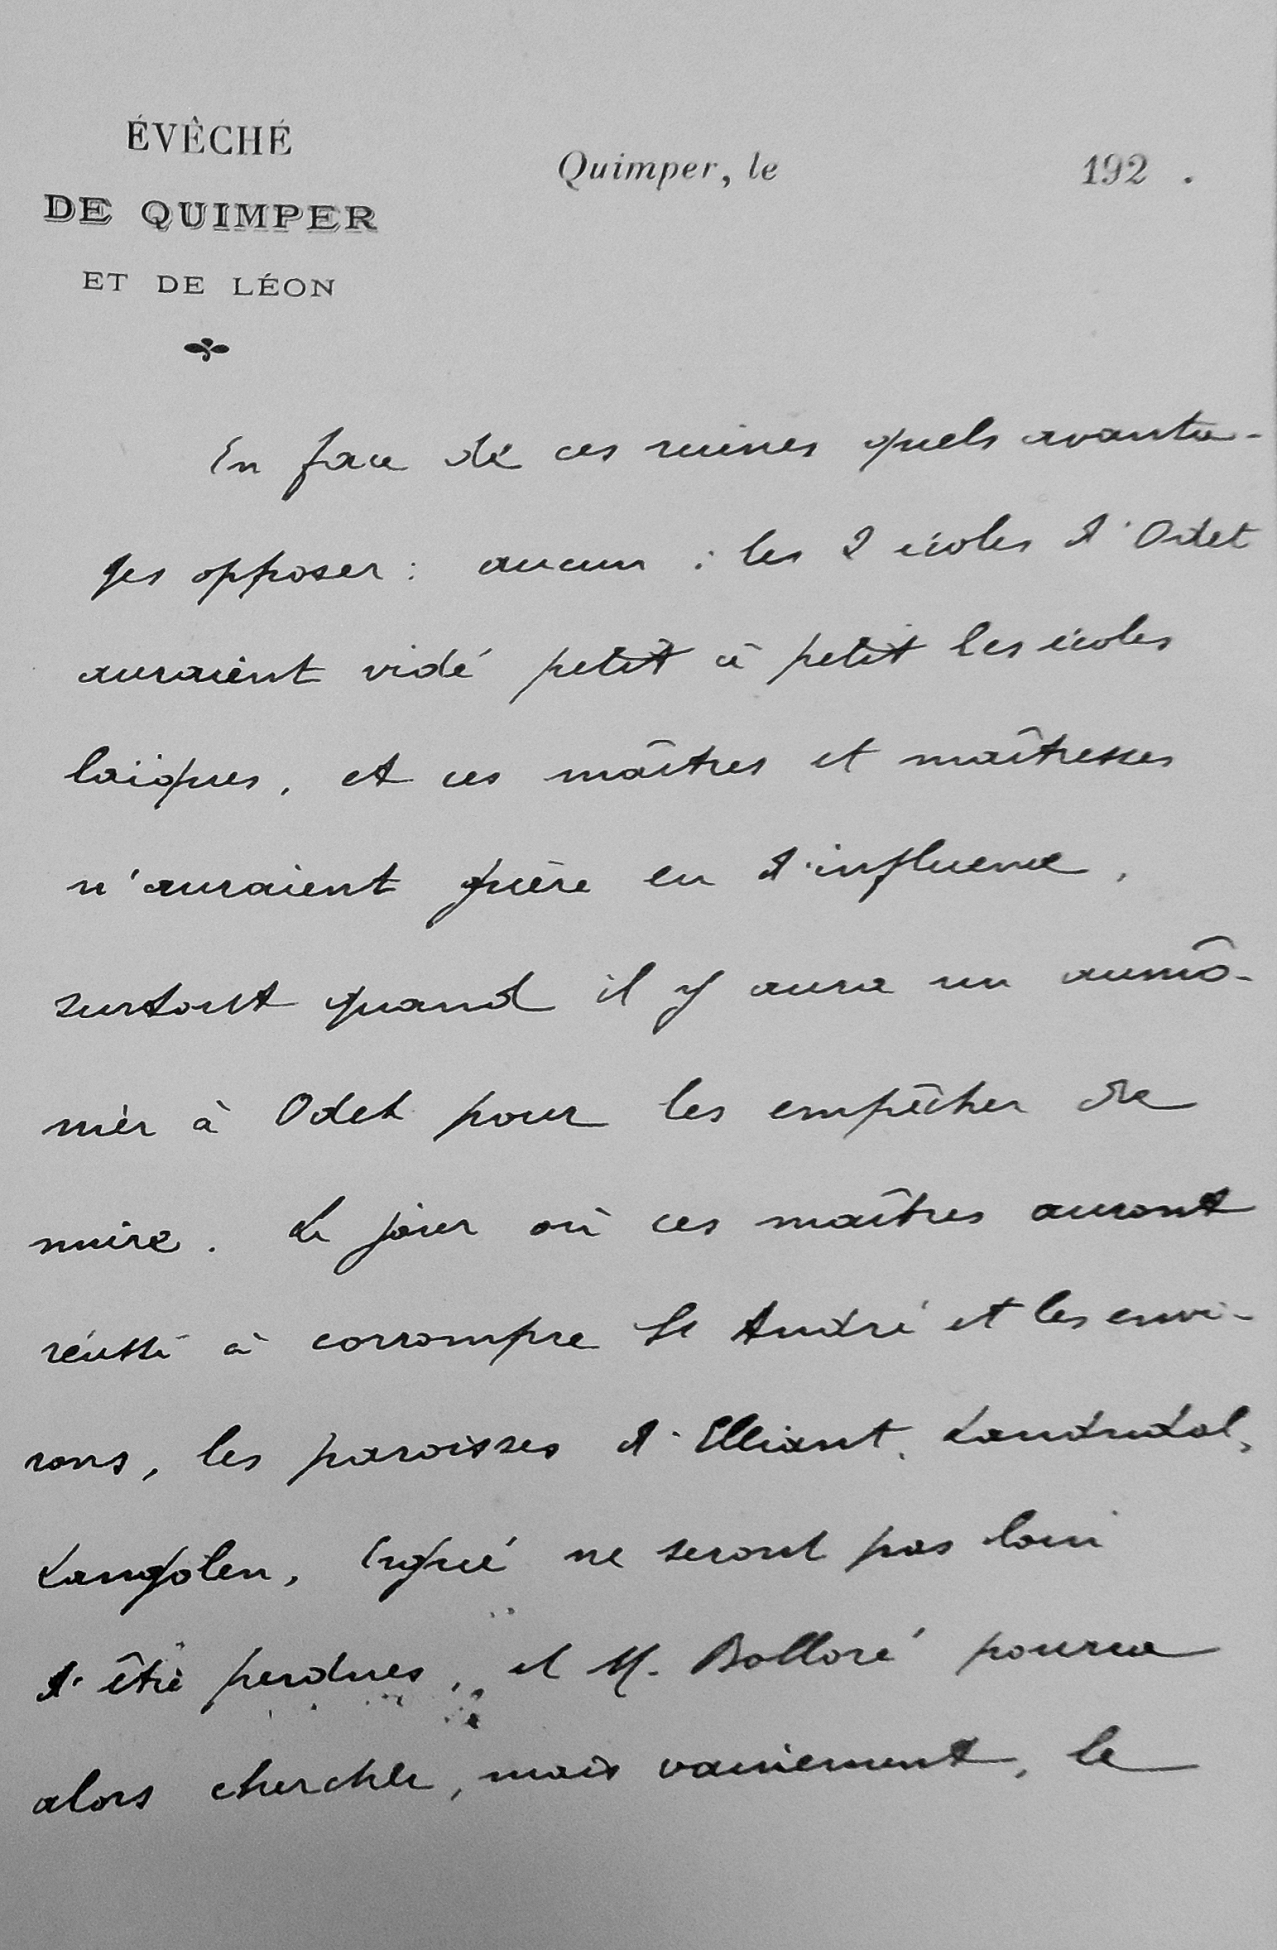 ÉVÊCHÉ
DE QUIMPER
ET DE LÉON
Quimper, le 192 .
En face de ces ruines quels avanta-
ges opposer : aucun : les 2 écoles d'Odet
auraient vidé petit à petit les écoles
laïques, et ces maîtres et maîtresses
n'auraient guère eu d'influence,
surtout quand il y aura un aumô-
nier à Odet pour les empêcher de
nuire. Le jour où ces maîtres auront
réussi à corrompre St André et les envi-
rons, les paroisses d'Elliant, Landudal,
Langolen, Ergué ne seront pas loin
d'être perdues, et M. Bolloré pourra
alors chercher, mais vainement, le